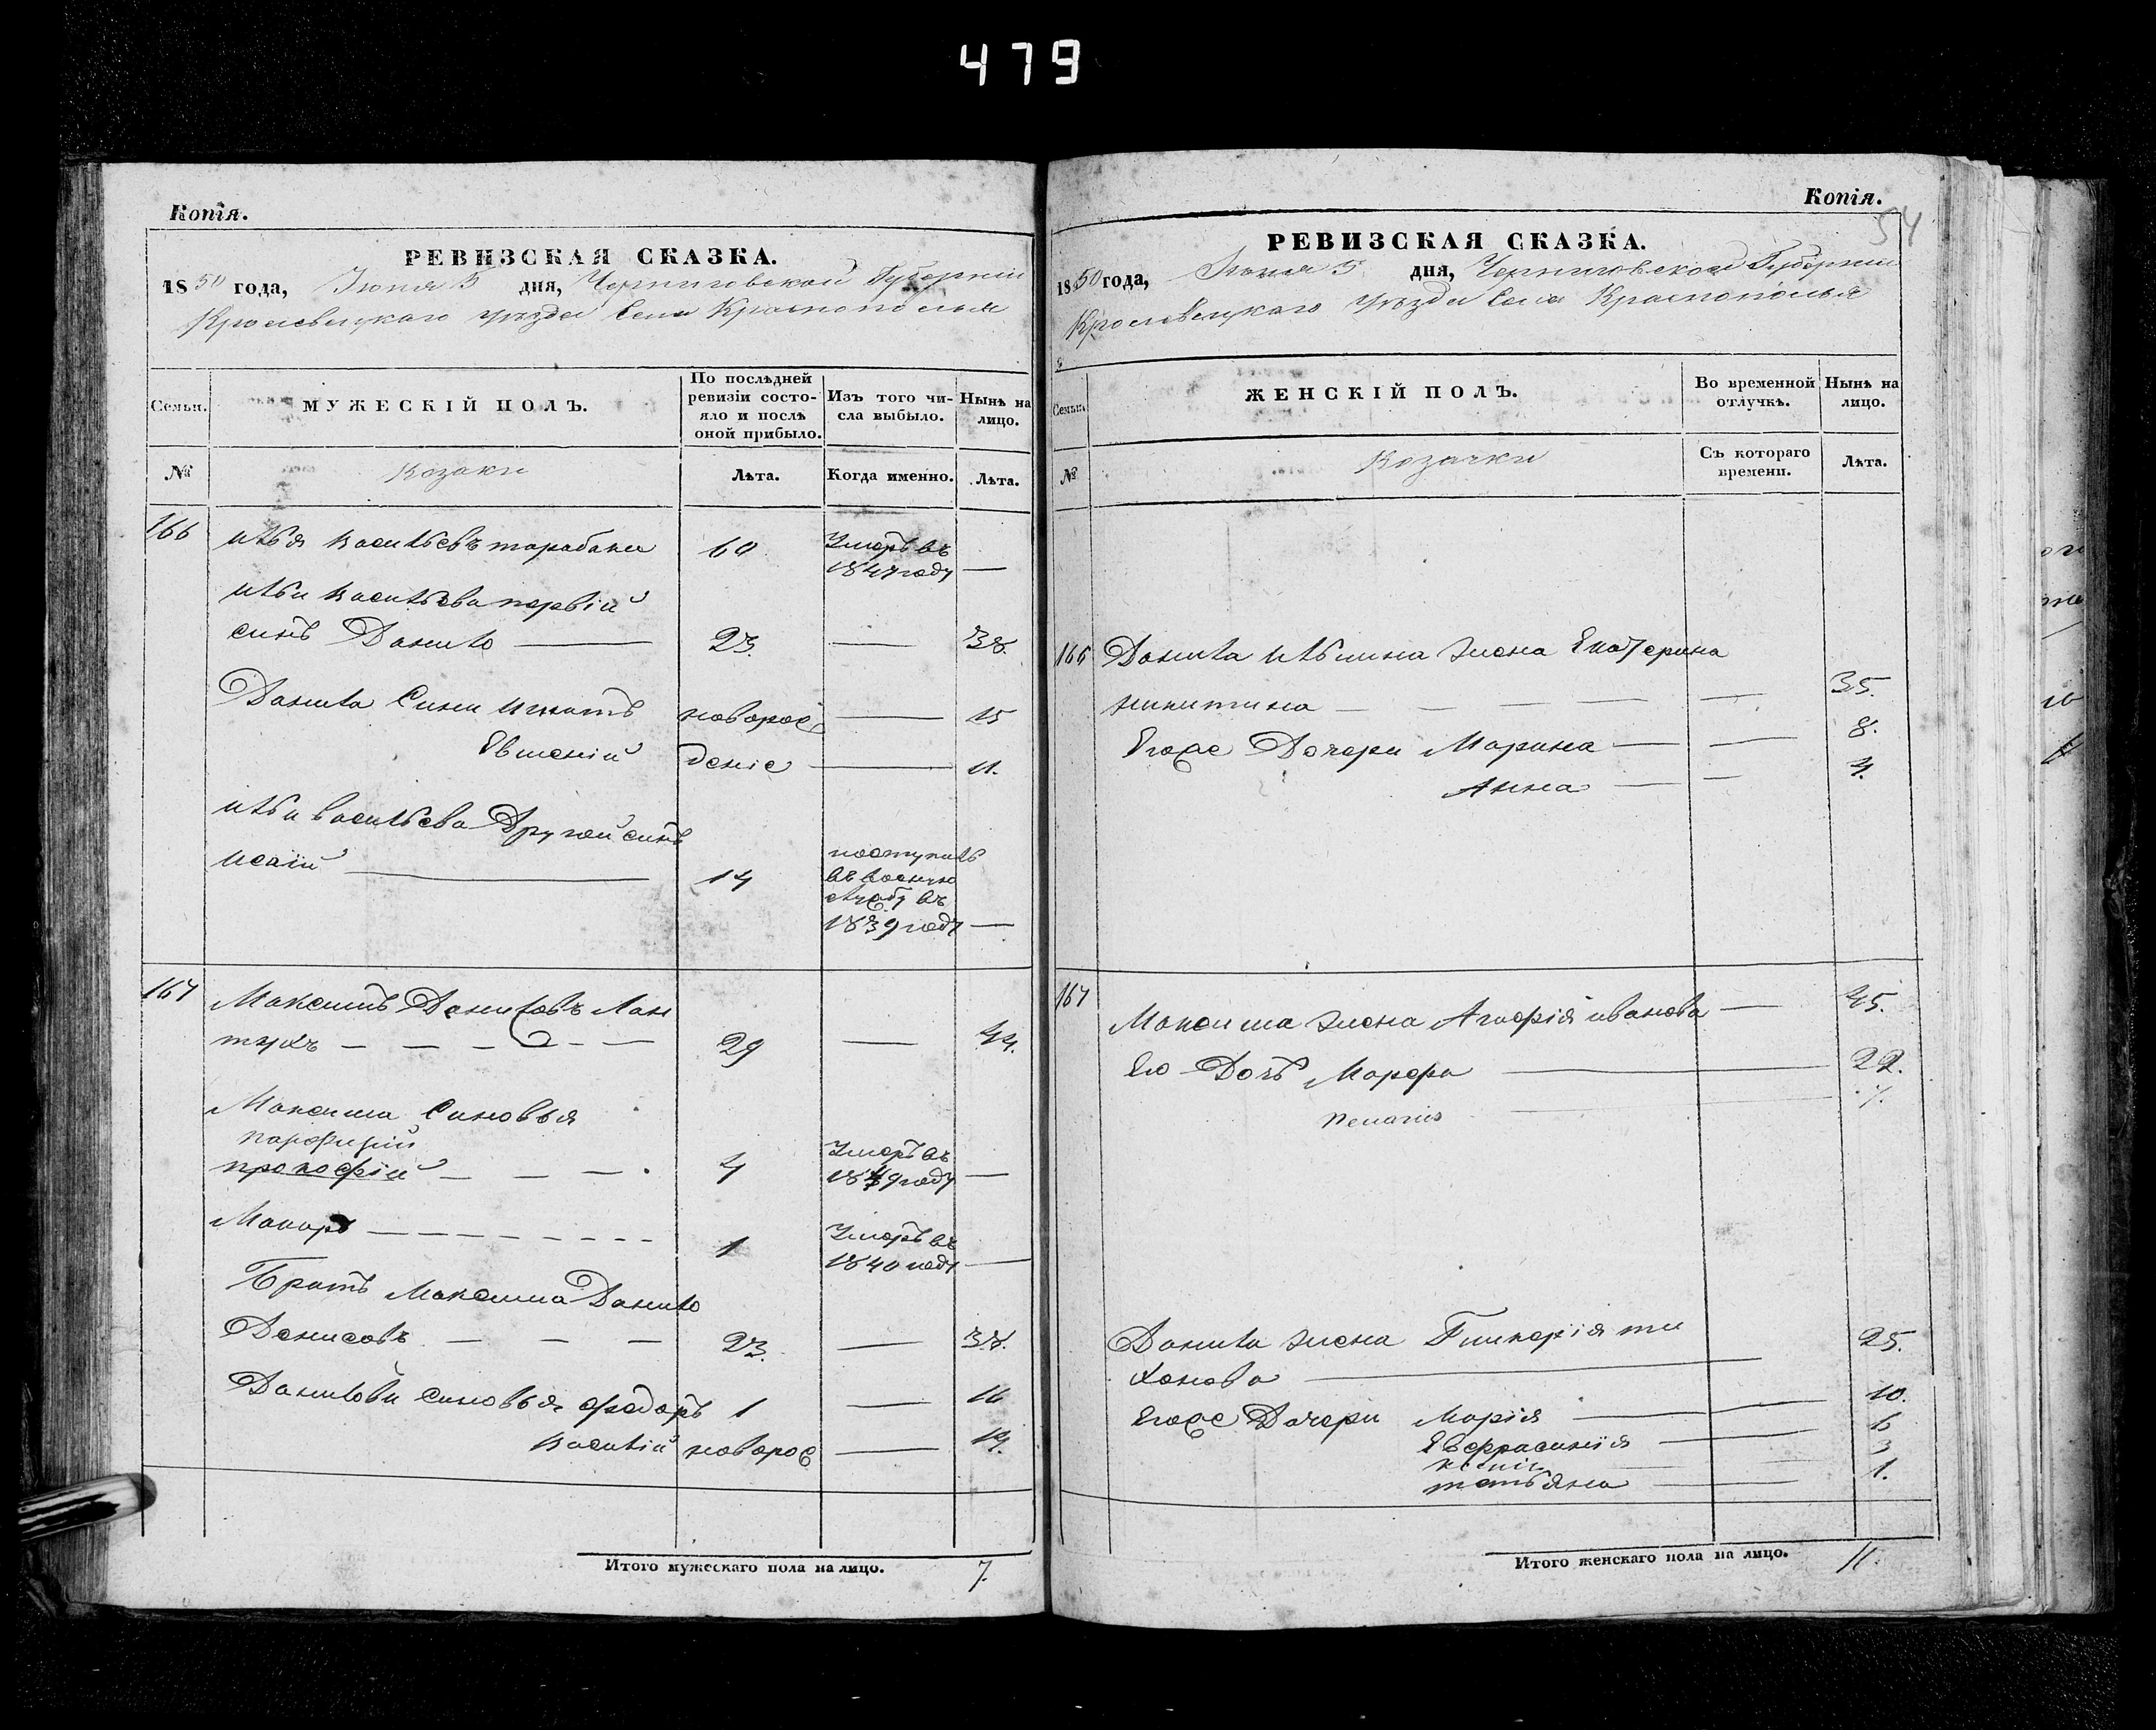 479
Копія.
РЕВИЗСКАЯ СКАЗКА.
1850 года, Іюня 5 дня, Черниговской Губерніи
Кролевецкаго уѣзда Села Краснополья
Семьи.
МУЖЕСКІЙ ПОЛЪ.
По послѣдней ревизіи состо-
яло и послѣ
оной прибыло.
Изъ того чи-
сла выбыло.
Нынѣ на
лицо.
№
Козаки
Лѣта.
Когда именно.
Лѣта.
166
Илья Васильевъ
60
Умеръ въ
1847 году
—
Ильи Васильева первій
синъ Данило —
23.
—
38.
Данила Сини Игнатъ
новорож
—
15
Евгеній
деніе
—
11.
Ильи Васильева Другой синъ
Исаій —
14
поступилъ
въ военную
службу въ
1839 году —
167
Максимъ Лан
тухъ — — — —
29
—
44.
Максима Синовья
прокофій — — —
4
Умеръ въ
1849 году —
Макаръ — — — — — — — —
1
Умеръ въ
1840 году —
Братъ Максима Данило
Денисовъ — — —
23.
—
38.
Данилови синовья федоръ
1
—
16
Василій
новорож
—
14.
Итого мужескаго пола на лицо.
7.
Копія.
54
РЕВИЗСКАЯ СКАЗКА.
1850 года, Іюня 5 дня, Черниговской Губерніи
Кролевецкаго уѣзда Села Краснополья
Семьи.
ЖЕНСКІЙ ПОЛЪ.
Во временной
отлучкѣ.
Нынѣ на
лицо.
№
Козачки
Съ котораго
времени.
Лѣта.
166
Данила Ильина жена Екатерина
никитина — — — — —
35.
Егоже Дочери Марина — —
8.
Анна — —
4.
167
Максима жена Агафія иванова —
45.
Его Дочь Марфа —
22.
Данила жена Гликерія ти
хонова —
25.
Егоже Дочери Марія —
10.
Евфрасинія —
6
ксенія
3
татьяна —
1.
Итого женскаго пола на лицо.
11.